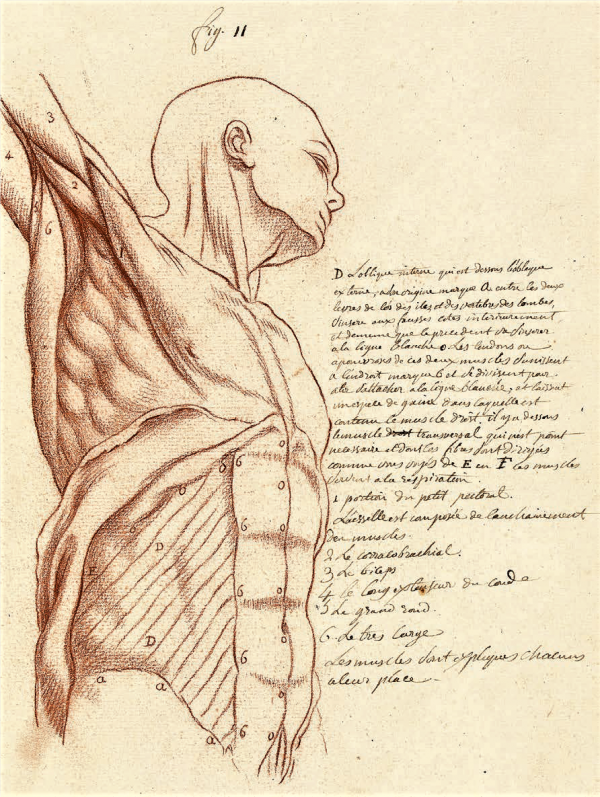 fig. 11
D L'oblique interne qui est dessous l'oblique
externe, a son origine marque a entre les deux
levres de l'os des iles et des vertebres des lombes,
s'insere aux fausses cotes interieurement
et de meme que le precedent va s'inserer
a la ligne blanche o. Les tendons ou
aponevroses de ces deux muscles s'unissent
a l'endroit marqué 6 et se divisent pour
aller s'attacher a la ligne blanche, et laissent
une espece de gaine dans laquelle est
contenu le muscle droit. il y a dessous
le muscle transversal qui n'est point
necessaire et dont les fibres sont dirigées
comme vous voyés de E en F ces muscles
servent a la respiration
1 portion du petit pectoral.
L'aisselle est composée de l'enchainement
des muscles.
2 Le coracobrachial.
3 Le biceps
4 le long extenseur du coude
5 Le grand rond.
6 Le tres large
Les muscles sont expliqués chacuns
a leur place.
3
4
2
6
1
o
6
o
6
o
D
6
o
E
o
D
6
o
a
a
6
o
a